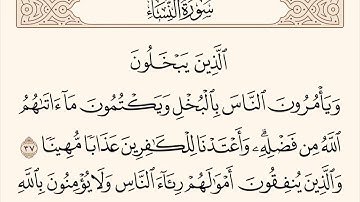 سُورَةُ النِّسَاءِ
ٱلَّذِينَ يَبۡخَلُونَ
وَيَأۡمُرُونَ ٱلنَّاسَ بِٱلۡبُخۡلِ وَيَكۡتُمُونَ مَآ ءَاتَىٰهُمُ
ٱللَّهُ مِن فَضۡلِهِۦۗ وَأَعۡتَدۡنَا لِلۡكَٰفِرِينَ عَذَابٗا مُّهِينٗا ٣٧
وَٱلَّذِينَ يُنفِقُونَ أَمۡوَٰلَهُمۡ رِئَآءَ ٱلنَّاسِ وَلَا يُؤۡمِنُونَ بِٱللَّهِ